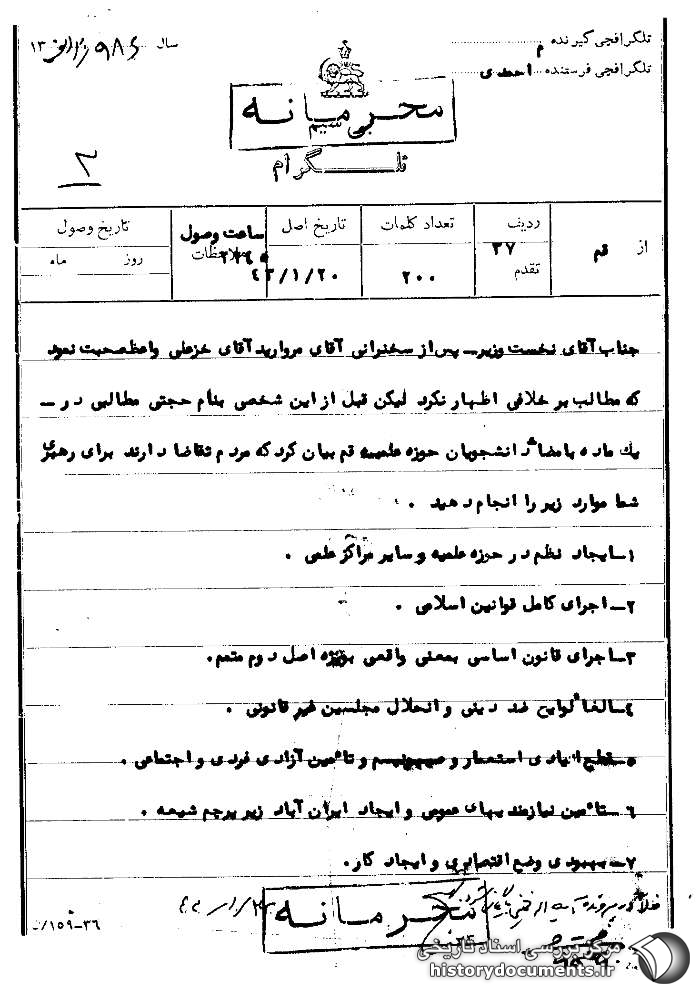 تلگرافچی گیرنده م
تلگرافچی فرستنده احمدی
سال ۱۳
محرمانه
بی سیم
تلگرام
از قم
ردیف ۳۷
تقدم
تعداد کلمات ۲۰۰
تاریخ اصل ۴۳/۱/۲۰
ساعت وصول
ملاحظات
تاریخ وصول
روز ماه
جناب آقای نخست وزیر ـ پس از سخنرانی آقای مروارید آقای خزعلی واعظ صحبت نمود
که مطالب بر خلافی اظهار نکرد لیکن قبل از این شخصی بنام حجتی مطالبی در ـ
یک ماده بامضاء دانشجویان حوزه علمیه قم بیان کرد که مردم تقاضا دارند برای رهبری
شما موارد زیر را انجام دهید .
۱ـ ایجاد نظم در حوزه علمیه و سایر مراکز علمی .
۲ـ اجرای کامل قوانین اسلامی .
۳ـ اجرای قانون اساسی بمعنی واقعی بویژه اصل دوم متمم .
٤ـ الغاء لوایح ضد دینی و انحلال مجلسین غیر قانونی .
۵ـ قطع ایادی استعمار و صیهونیسم و تأمین آزادی فردی و اجتماعی .
٦ ـ تأمین نیازمندیهای عمومی و ایجاد ایران آباد زیر پرچم شیعه .
۷ـ بهبودی وضع اقتصادی و ایجاد کار .
محرمانه
۱۵۹-۳٦
مرکز بررسی اسناد تاریخی
historydocuments.ir